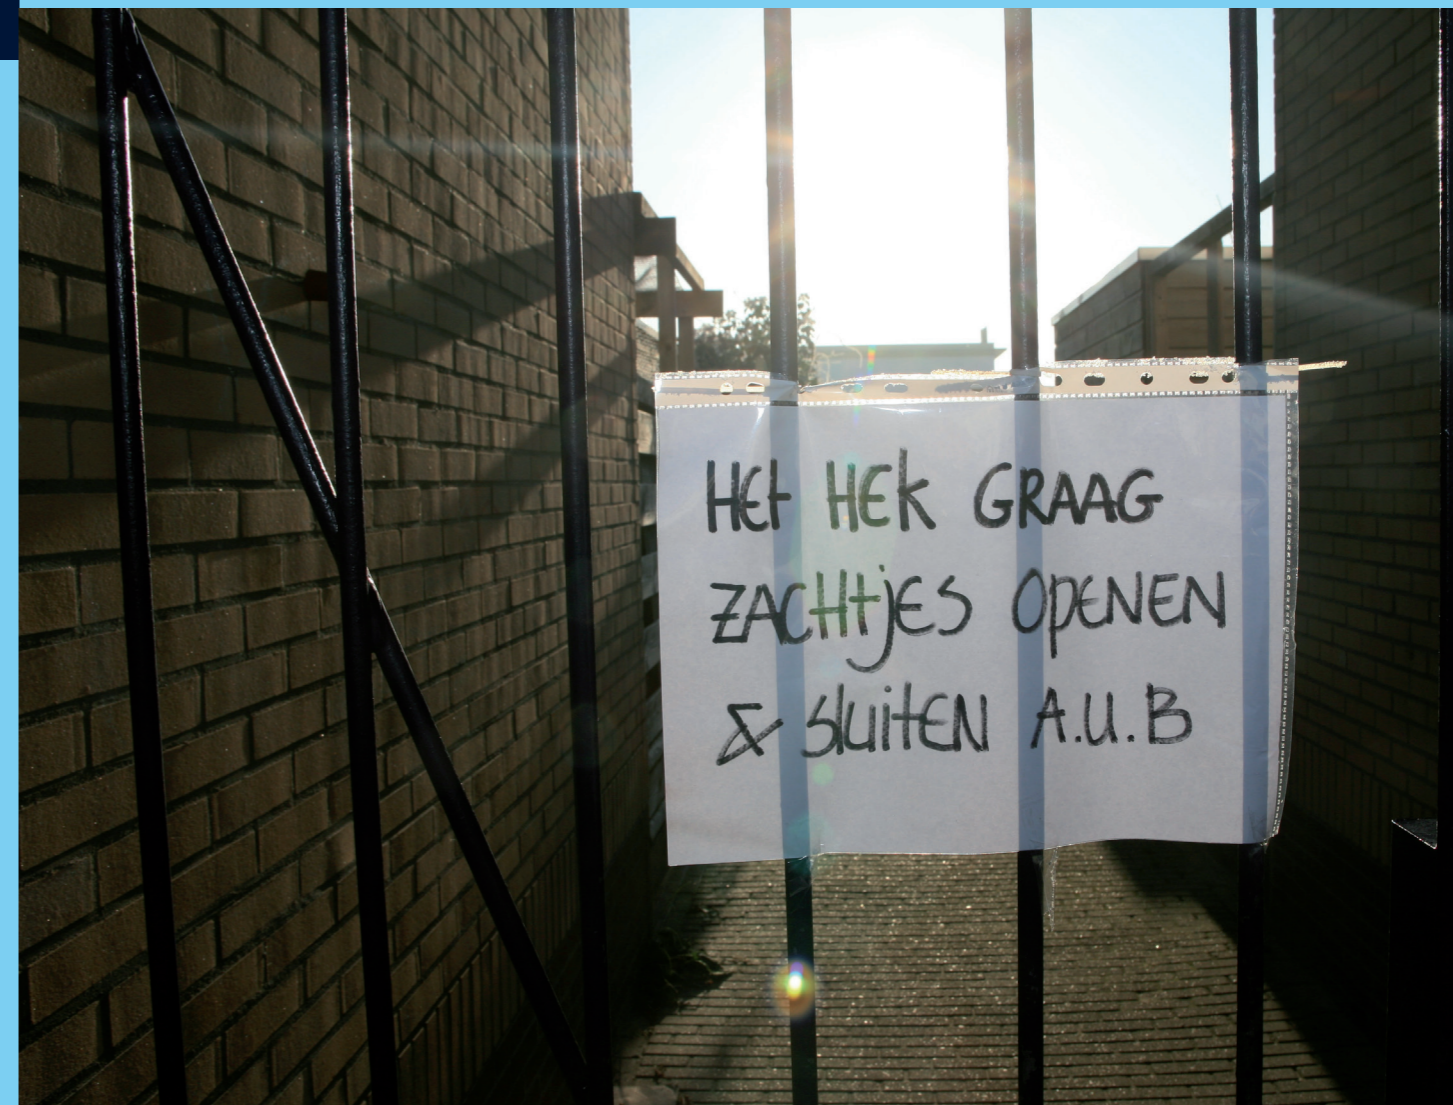 HEt HEk GRAAG
ZACHtjES OPENEN
& sluitEN A.U.B